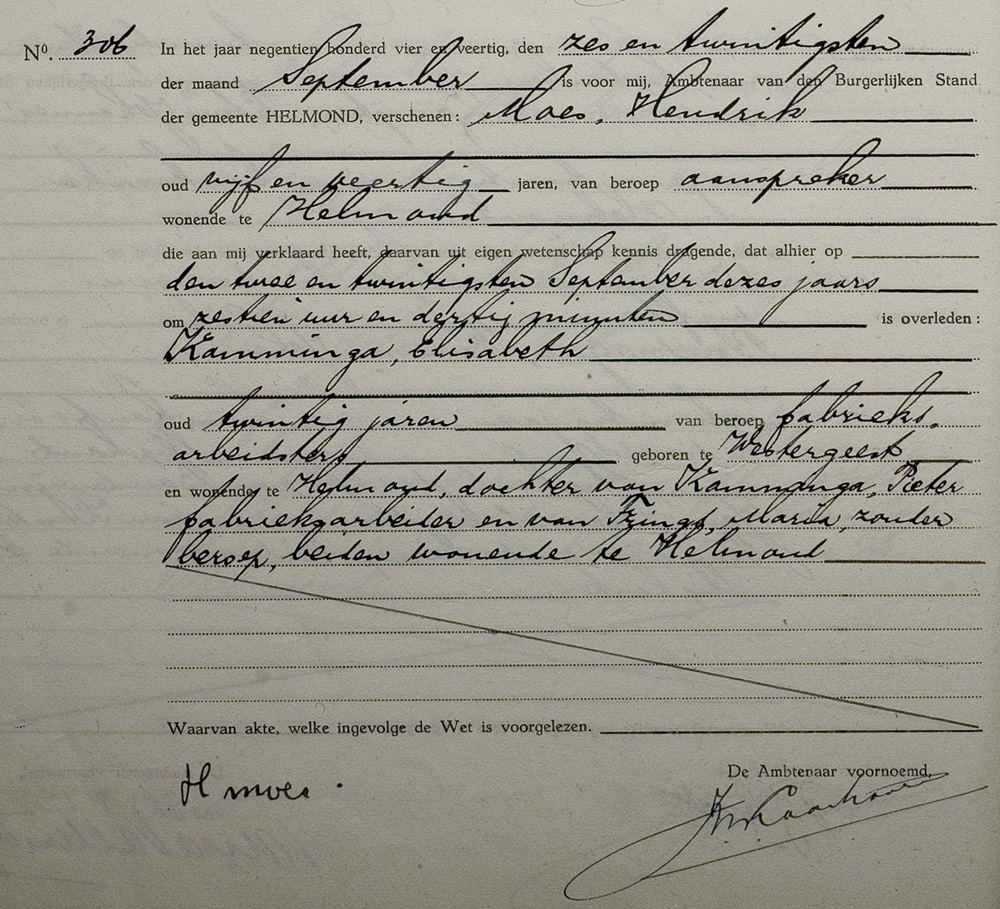 Nº. 306
In het jaar negentien honderd vier en veertig, den zes en twintigsten
der maand September is voor mij, Ambtenaar van den Burgerlijken Stand
der gemeente HELMOND, verschenen: Maes, Hendrik
oud vijf en veertig jaren, van beroep aanspreker
wonende te Helmond
die aan mij verklaard heeft, daarvan uit eigen wetenschap kennis dragende, dat alhier op
den twee en twintigsten September dezes jaars
om zestien uur en dertig minuten is overleden:
Kamminga, Elisabeth
oud twintig jaren van beroep fabrieks-
arbeidster, geboren te Westergeest
en wonende te Helmond, dochter van Kamminga, Pieter
fabrieksarbeider en van Maria, zonder
beroep, beiden wonende te Helmond
Waarvan akte, welke ingevolge de Wet is voorgelezen.
De Ambtenaar voornoemd,
H maes.